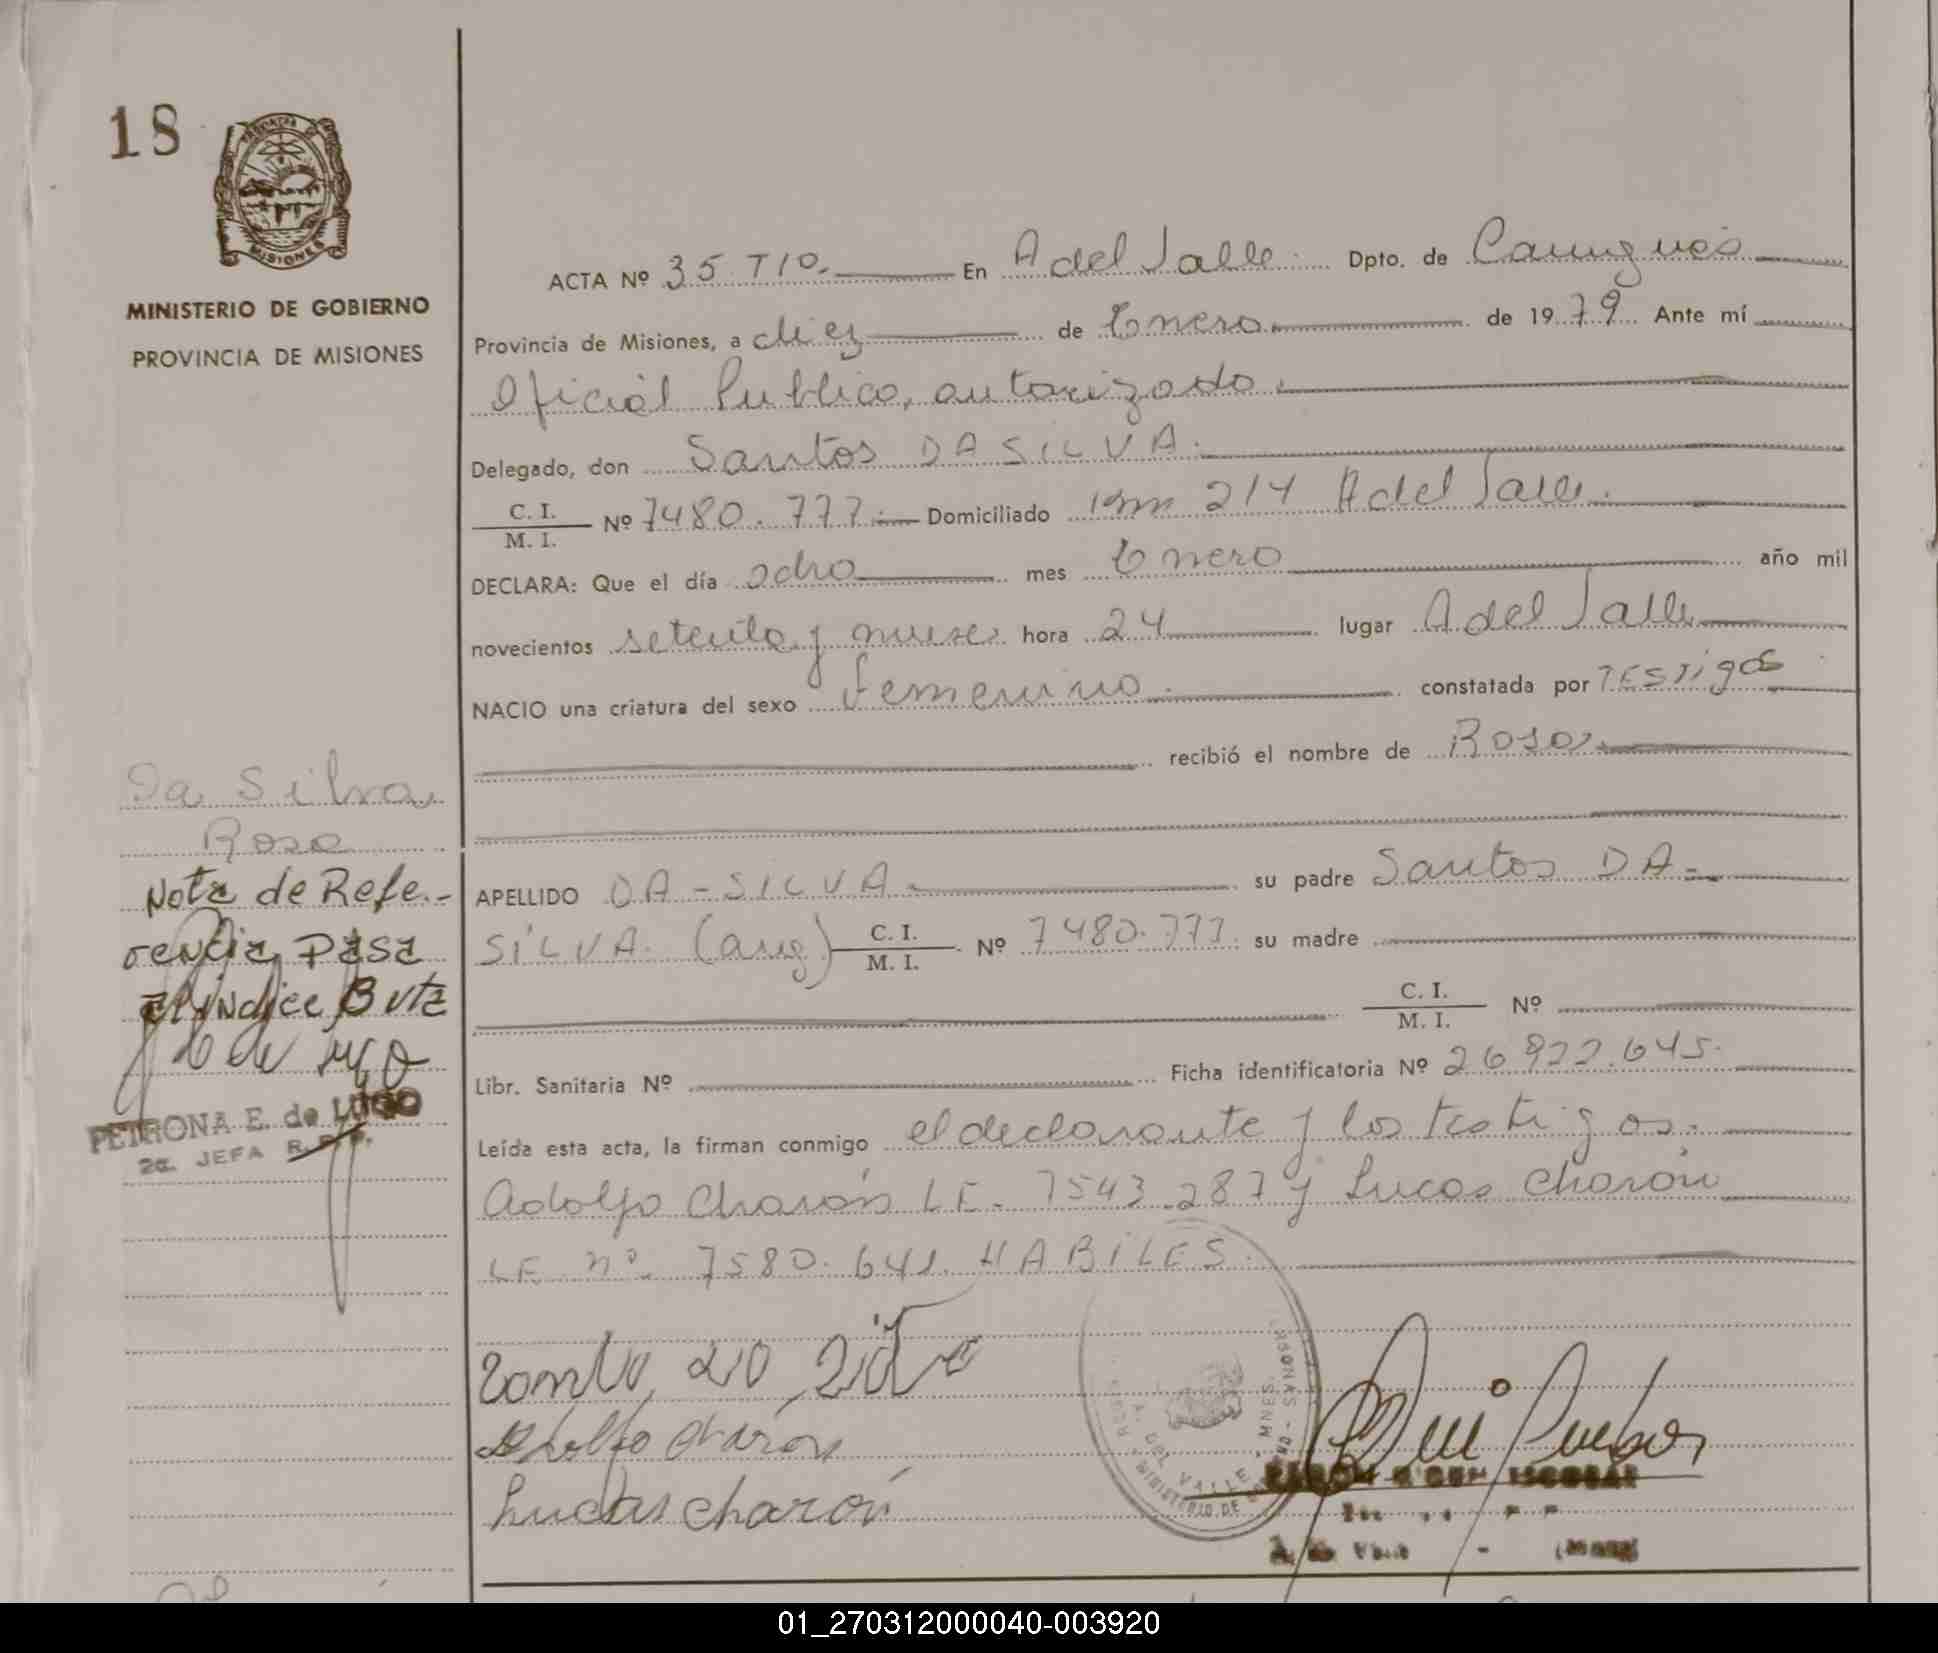 18
PROVINCIA DE
MISIONES
MINISTERIO DE GOBIERNO
PROVINCIA DE MISIONES
ACTA Nº 35 T I º. En A del Valle Dpto. de Cainguás
Provincia de Misiones, a diez de Enero de 1979 Ante mí
Oficial Publico, autorizado
Delegado, don Santos DA SILVA.
C. I.
M. I. Nº 7480.777 Domiciliado Km 214 A del Valle.
DECLARA: Que el día ocho mes Enero año mil
novecientos setenta y nueve hora 24 lugar A del Valle
NACIO una criatura del sexo femenino constatada por TESTigos
recibió el nombre de Rosa
APELLIDO DA-SILVA su padre Santos DA-
SILVA. (arg) C. I. M. I. Nº 7480.777. su madre
C. I. M. I. Nº
Libr. Sanitaria Nº Ficha identificatoria Nº 26.922.645.
Leída esta acta, la firman conmigo el declarante y los testigos.
Adolfo Charón LE. 7543.287 y Lucas Charón
LE. nº 7580.641. HABILES.
Da Silva
Rosa
Nota de Refe.-
rencia Pasa
al indice
PETRONA E. de LUGO
2a. JEFA R. P. P.
Adolfo Charón
Lucas Charón
MINISTERIO DE
DEL VALLE - MNES.
ESCOBAR
01_270312000040-003920